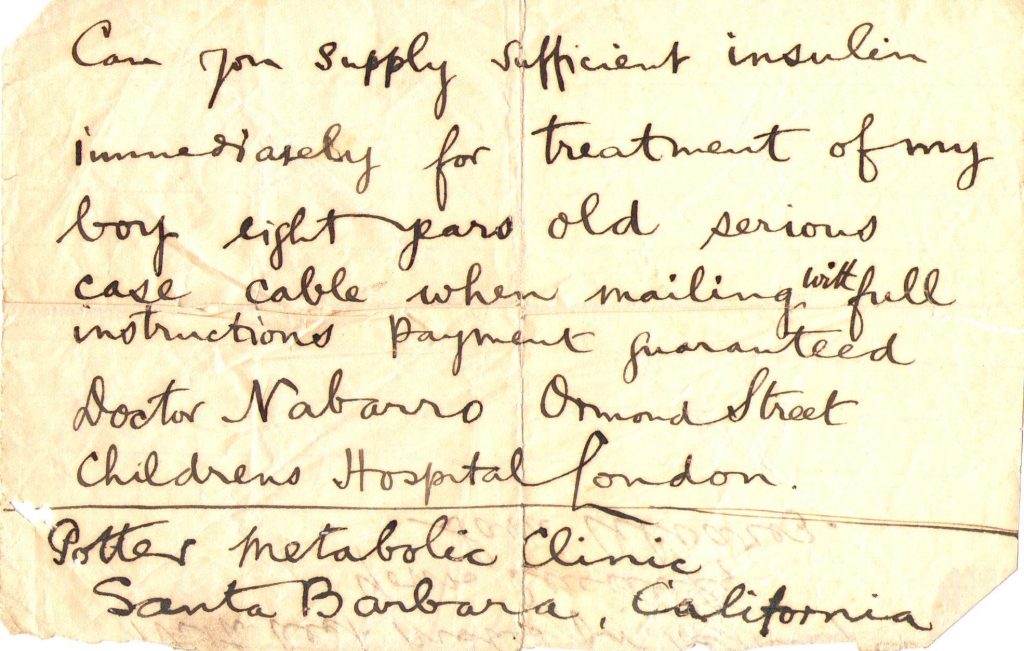 Can you supply sufficient insulin
immediately for treatment of my
boy eight years old serious
case cable when mailing with full
instructions payment guaranteed
Doctor Nabarro Ormond Street
Childrens Hospital London.
Potter Metabolic Clinic
Santa Barbara, California